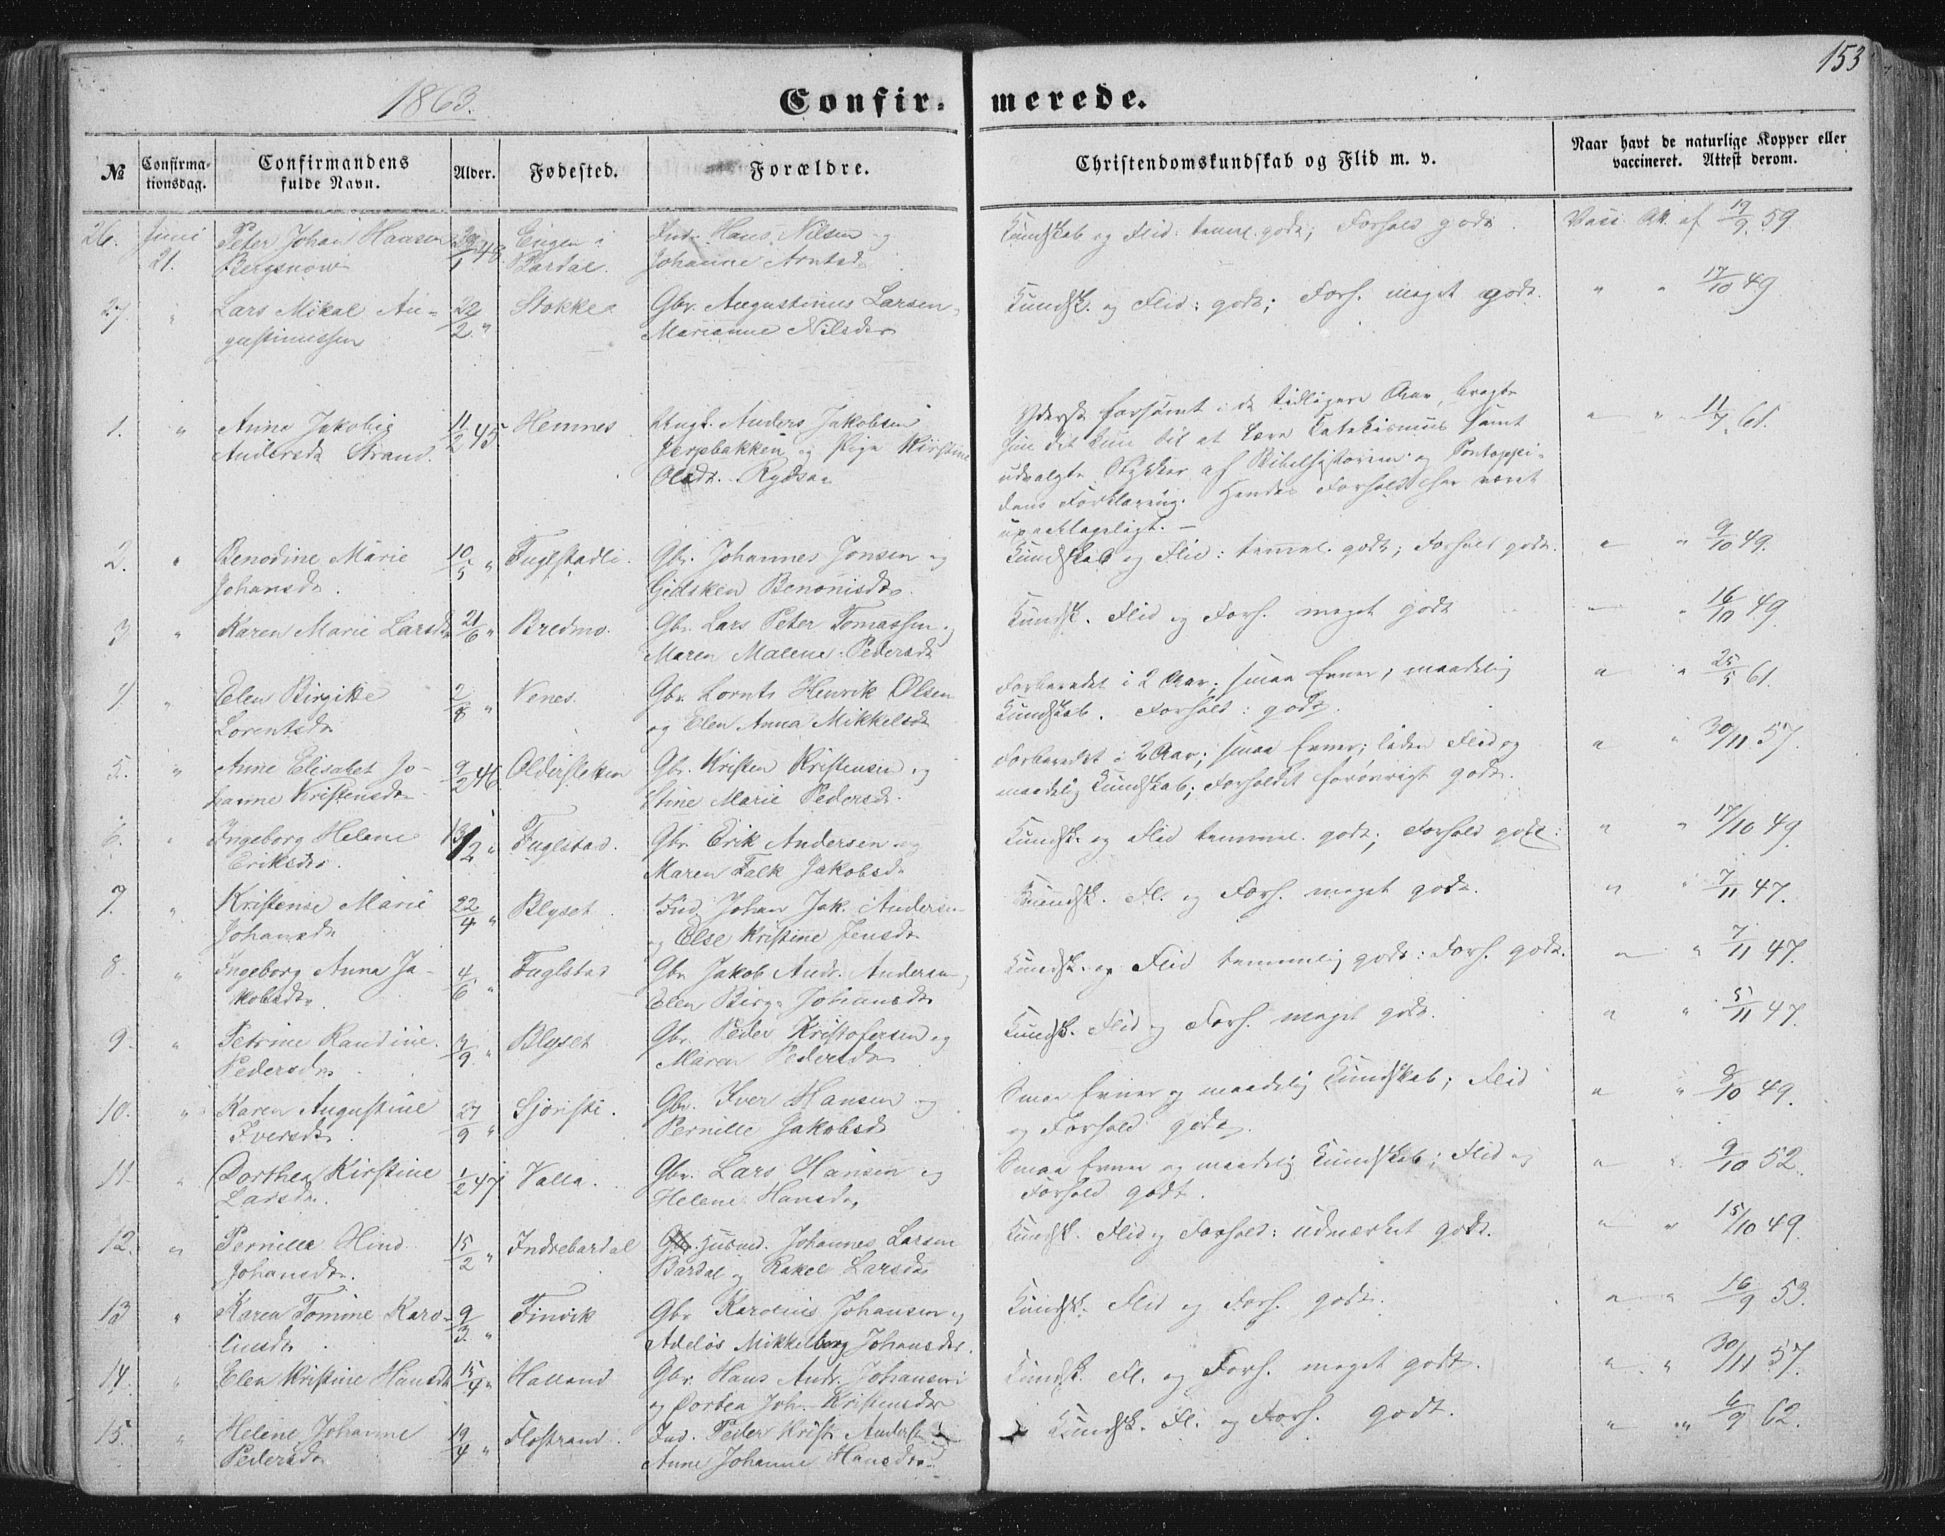 153
1863.
Confir- merede.
№ Confirma- Confirmandens Alder. Fødested. Forældre. Christendomskundskab og Flid m. v. Naar havt de naturlige Kopper eller
tionsdag. fulde Navn. vaccineret. Attest derom.
26. Juni Peter Johan Hansen 29/1 48 Engen i Ind. Hans Nilsen og Kundskab og Flid: temml. godt; Forhold godt. Vacc. Att. af 19/9 59
21. Bergsnov Bardal. Johanne Arntsd.
27. " Lars Mikal Au- 22/2 " Stokke. Gbr. Augustinus Larsen, Kundsk. og Flid: godt; Forh. meget godt. " " 17/10 49
gustinussen Marianne Nilsdr
1. " Anne Jakobig 11/2 45 Hemnes. Ungk. Anders Jakobsen Yderst forsømt i de tidligere Aar, bragte " " 11/7 61.
Andersdr Strand. Jerpbakken og Pige Kirstine hun det kun til at lære Katekismus samt
Olsdr. udvalgte Stykker af Bibelhistorien og Pontoppi-
dans Forklaring. Hendes Forhold har været
upaaklageligt. —
2. " Benodine Marie 10/5 " Fuglstadli. Gbr. Johannes Jonsen og Kundskab og Flid: temml. godt; Forhold godt. " " 9/10 49.
Johansdr. Gidsken Benonisdr.
3 " Karen Marie Larsdr 21/6 " Bredmo. Gbr. Lars Peter Tomassen og Kundsk. Flid og Forh. meget godt " 16/10 49
Maren Malene Pedersdr
4. " Elen Birgitte 2/8 " Nenes. Gbr. Lornts Henrik Olsen Forberedet i 2 Aar; smaa Evner, maadelig " " 25/5 61.
Lorentsdr og Elen Anna Mikkelsdr Kundskab. Forhold: godt.
5. " Anne Elisabet Jo- 9/2 46 Oldersletten Gbr. Kristen Kristensen og Forberedet i 2 Aar; smaa Evner; liden Flid og " " 30/11 57.
hanne Kristensdr. Stine Marie Pedersdr. maadelig Kundskab; Forholdet forøvrigt godt.
6. " Ingeborg Helene 13/2 " Fuglstad. Gbr. Erik Andersen og Kundsk. og Flid temml. godt; Forhold godt. " " 17/10 49.
Eriksdr. Maren Falk Jakobsd.
7. " Kristense Marie 22/4 " Blyset. Ind. Johan Jak. Andersen Kundsk. Fl. og Forh. meget godt. " " 7/11 47.
Johansdr og Else Kristine Jensdr
8. " Ingeborg Anna Ja- 4/6 " Fuglstad Gbr. Jakob Andr. Andersen, Kundsk. og Flid temmelig godt: Forh. godt. " " 7/11 47.
kobsdr. Elen Birg. Johansdr
9. " Petrine Randine. 7/9 " Blyset Gbr. Peder Kristofersen og Kundsk. Flid og Forh. meget godt. " " 5/11 47.
Pedersdr Maren Pedersdr
10. " Karen Augustine 27/9 " Sjøristi. Gbr. Iver Hansen og Smaa Evner og maadelig Kundskab; Flid " " 8/10 49.
Iversdr. Pernille Jakobsdr og Forhold godt.
11. " Dorthea Kirstine 1/2 47 Valla. Gbr. Lars Hansen og Smaa Evner og maadelig Kundskab; Flid og " " 9/10 52.
Larsdr. Helene Hansdr Forhold godt.
12. " Pernille Hind 15/2 " Indrebardal Husmd. Johannes Larsen Kundsk. Flid og Forhold: udmærket godt. " " 15/10 49.
Johansdr. Bardal og Rakel Larsdr
13 " Karen Tomine Karo- 9/3. " Finvik Gbr. Karolius Johansen og Kundsk. Flid og Forh. godt. " " 16/9 53.
liusdr. Adelös Mikkelborg Johansdr.
14. " Elen Kristine Hansdr 15/4 " Halland Gbr. Hans Andr. Johansen Kundsk. Fl. og Forh. meget godt. " " 30/11 57.
og Dortea Joh. Kristensdr
15. " Helene Johanne 19/4 " Flostrand. Ind. Peder Krist. Andersen Kundsk. Fl. og Forh. godt. " " 6/9 62.
Pedersdr Anne Johanne Hansdr.